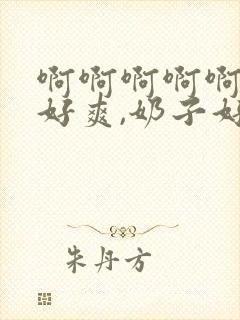 啊啊啊啊啊
好爽,奶子好
朱丹方